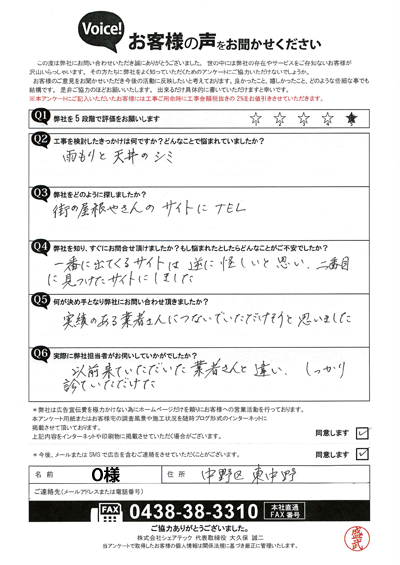 Voice!
お客様の声をお聞かせください
この度は弊社にお問い合わせいただき誠にありがとうございました。世の中には弊社の存在やサービスをご存知ないお客様が
沢山いらっしゃいます。その方たちに弊社をよく知っていただくためのアンケートにご協力いただけないでしょうか。
お客様のご意見をお聞かせいただき今後の活動に反映したいと考えております。良かったこと、嬉しかったこと、どのような些細な事でも
結構です。是非ご協力のほどお願いいたします。出来るだけ具体的に書いていただけますと幸いです。
※本アンケートにご記入いただいたお客様には工事ご用命時に工事金額税抜きの2%をお値引きさせていただきます。
Q1 弊社を5段階で評価をお願いします
1 2 3 4 5
Q2 工事を検討したきっかけは何ですか?どんなことで悩まれていましたか?
雨もりと天井のシミ
Q3 弊社をどのように探しましたか?
街の屋根やさんのサイトにTEL
Q4 弊社を知り、すぐにお問合せ頂けましたか?もし悩まれたとしたらどんなことがご不安でしたか?
一番に出てくるサイトは逆に怪しいと思い、二番目
に見つけたサイトにしました
Q5 何が決め手となり弊社にお問い合わせ頂きましたか?
実績のある業者さんにつないでいただけそうと思いました
Q6 実際に弊社担当者がお伺いしていかがでしたか?
以前来ていただいた業者さんと違い、しっかり
診ていただけた
※弊社は広告宣伝費を極力かけない為にホームページだけを頼りにお客様への営業活動を行っております。
本アンケート用紙またはお客様宅の調査風景や施工状況を随時ブログ形式のインターネットに
掲載させて頂いております。
上記内容をインターネットや印刷物に掲載させていただく場合がございます。 同意します
※今後、メールまたはSMSで広告を含むご連絡をさせていただくことがございます。 同意します
名前 O様 住所 中野区東中野
ご連絡先(メールアドレスまたは電話番号)
FAX 0438-38-3310 本社直通 FAX番号
ご協力ありがとうございました。
株式会社シェアテック 代表取締役 大久保 誠二
当アンケートで取得したお客様の個人情報は関係法規に基づき厳正に管理いたします。
盛武